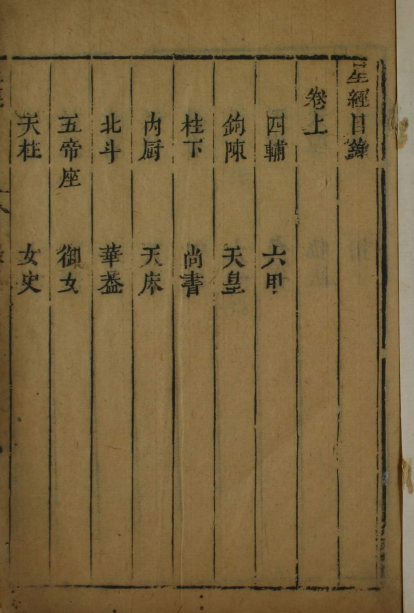 星經目錄
卷上
四輔 六甲
鉤陳 天皇
柱下 尚書
內厨 天床
北斗 華蓋
五帝座 御女
天柱 女史